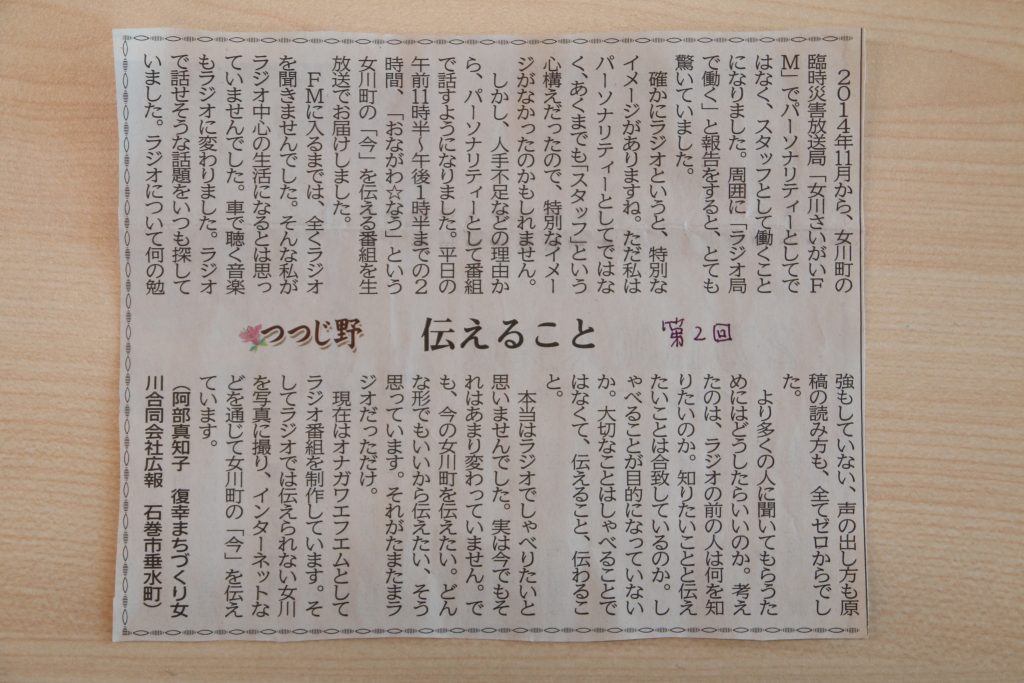 つつじ野
伝えること
第2回
２０１４年１１月から、女川町の
臨時災害放送局「女川さいがいＦ
Ｍ」でパーソナリティーとしてで
はなく、スタッフとして働くこと
になりました。周囲に「ラジオ局
で働く」と報告をすると、とても
驚いていました。
確かにラジオというと、特別な
イメージがありますね。ただ私は
パーソナリティーとしてではな
く、あくまでも「スタッフ」という
心構えだったので、特別なイメー
ジがなかったのかもしれません。
しかし、人手不足などの理由か
ら、パーソナリティーとして番組
で話すようになりました。平日の
午前11時半～午後１時半までの２
時間、「おながわ☆なう」という
女川町の「今」を伝える番組を生
放送でお届けしました。
ＦＭに入るまでは、全くラジオ
を聞きませんでした。そんな私が
ラジオ中心の生活になるとは思っ
ていませんでした。車で聴く音楽
もラジオに変わりました。ラジオ
で話せそうな話題をいつも探して
いました。ラジオについて何の勉
強もしていない、声の出し方も原
稿の読み方も、全てゼロからでし
た。
より多くの人に聞いてもらうた
めにはどうしたらいいのか。考え
たのは、ラジオの前の人は何を知
りたいのか。知りたいことと伝え
たいことは合致しているのか。し
ゃべることが目的になっていない
か。大切なことはしゃべることで
はなくて、伝えること、伝わるこ
と。
本当はラジオでしゃべりたいと
思いませんでした。実は今でもそ
れはあまり変わっていません。で
も、今の女川町を伝えたい。どん
な形でもいいから伝えたい、そう
思っています。それがたまたまラ
ジオだっただけ。
現在はオナガワエフエムとして
ラジオ番組を制作しています。そ
してラジオでは伝えられない女川
を写真に撮り、インターネットな
どを通じて女川町の「今」を伝え
ています。
（阿部真知子　復幸まちづくり女
川合同会社広報　石巻市垂水町）